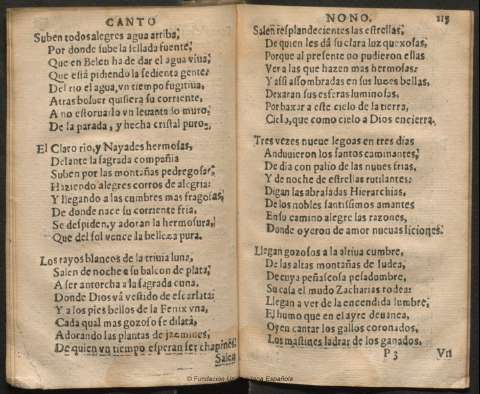 CANTO
Suben todos alegres agua arriba,
Por donde sube la sellada fuente,
Que en Belen ha de dar el agua viua,
Que está pidiendo la sedienta gente:
Del rio el agua, vn tiempo fugitiua,
Atras boluer quisiera su corriente,
A no estoruarlo vn leuantado muro,
De la parada, y hecha cristal puro.
El Claro rio, y Nayades hermosas,
Delante la sagrada compañia
Suben por las montañas pedregosas,
Haziendo alegres corros de alegria:
Y llegando a las cumbres mas fragosas,
De donde nace su corriente fria,
Se despiden, y adoran la hermosura,
Que del sol vence la belleza pura.
Los rayos blancos de la triuia luna,
Salen de noche a su balcon de plata,
A ser antorcha a la sagrada cuna,
Donde Dios vá vestido de escarlata:
Y a los pies bellos de la Fenix vna,
Cada qual mas gozoso se dilata,
Adorando las plantas de jazmines,
De quien vn tiempo esperan ser chapines.
Salen
NONO.
115
Salen resplandecientes las estrellas,
De quien les dá su clara luz quexosas,
Porque al presente no pudieron ellas
Ver a las que hazen mas hermosas:
Y assi assombradas en sus luzes bellas,
Dexaran sus esferas luminosas,
Por baxar a este cielo de la tierra,
Cielo, que como cielo a Dios encierra.
Tres vezes nueue leguas en tres dias
Anduuieron los santos caminantes,
De dia con palio de las nuues frias,
Y de noche de estrellas rutilantes:
Digan las abrasadas Hierarchias,
De los nobles santissimos amantes
En su camino alegre las razones,
Donde oyeron de amor nueuas liciones.
Llegan gozosos a la altiua cumbre,
De las altas montañas de Iudea,
De cuya peñascosa pesadumbre,
Su casa el mudo Zacharias rodea:
Llegan a ver de la encendida lumbre,
El humo que en el ayre deuanea,
Oyen cantar los gallos coronados,
Los mastines ladrar de los ganados,
P 3 Vn
© Fundación Universitaria Española